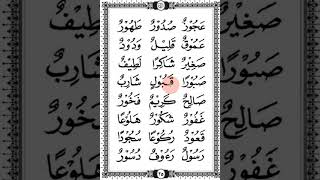 عَجُوْزٌ صُدُوْرٌ طَهُوْرٌ
عَمُوْقٌ قَلِيْلٌ وَدُوْدٌ
صَغِيْرٌ شَاكِرًا لَطِيْفٌ
صَبُوْرًا قَبُوْلٍ شَارِبٌ
صَالِحٌ كَرِيْمٌ فَخُوْرٌ
غَفُوْرٌ شَكُوْرٌ هَلُوْعًا
قَعُوْدٌ رُكُوْعًا سُجُوْدًا
رَسُوْلٌ رَءُوْفٌ دُسُوْرٌ